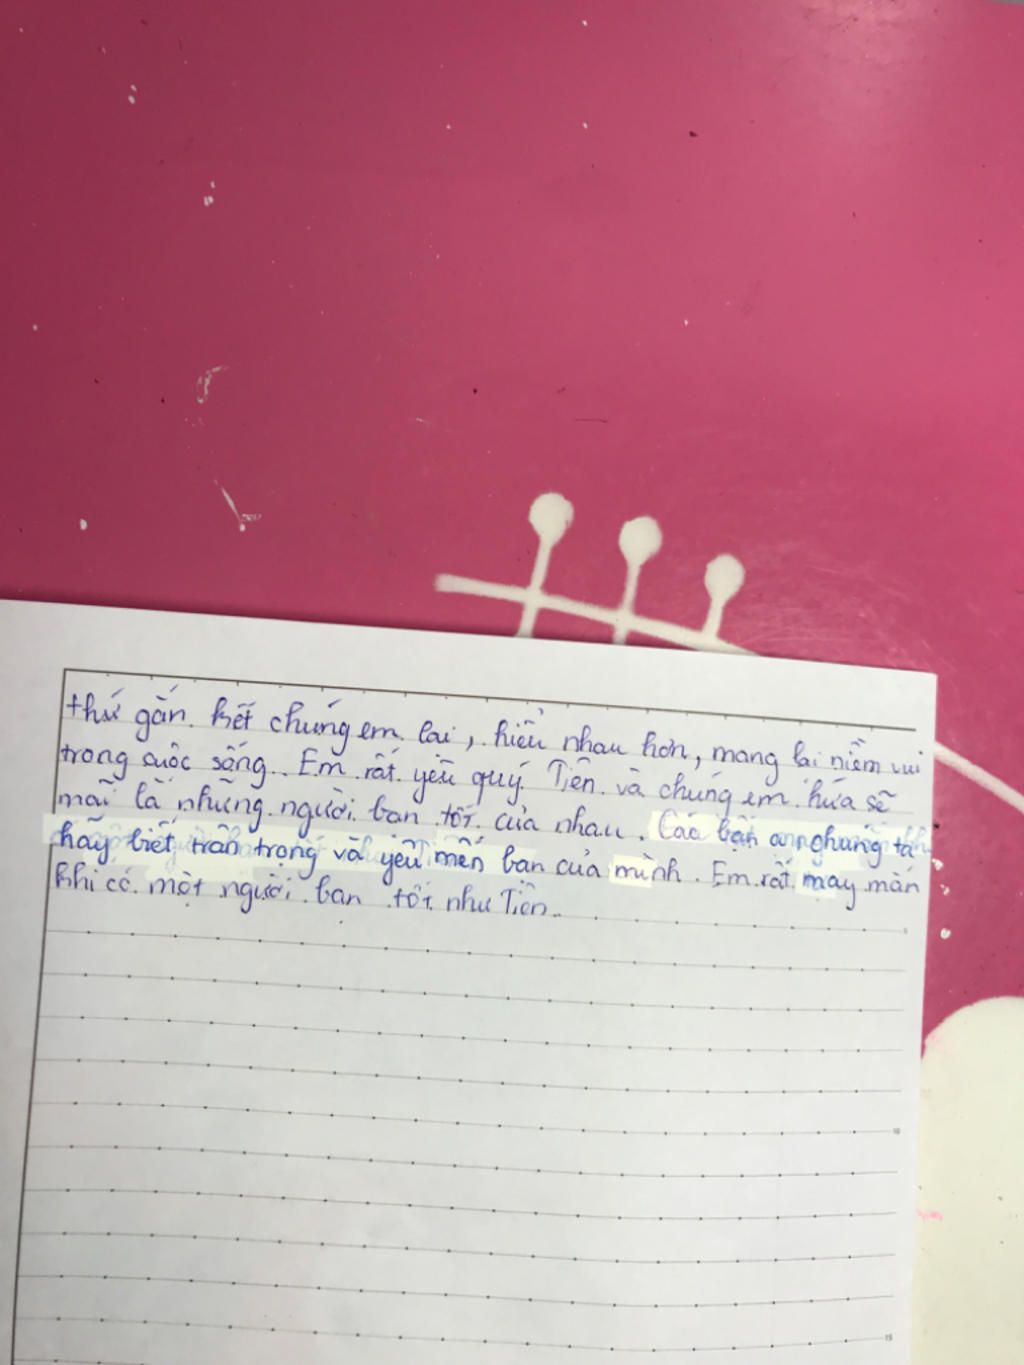 thứ gắn kết chúng em lại, hiểu nhau hơn, mang lại niềm vui
trong cuộc sống. Em rất yêu quý Tiên và chúng em hứa sẽ
mãi là những người bạn tốt của nhau. Các bạn ơi chúng ta
hãy biết trân trọng và yêu mến bạn của mình. Em rất may mắn
khi có một người bạn tốt như Tiên.
5
10
15